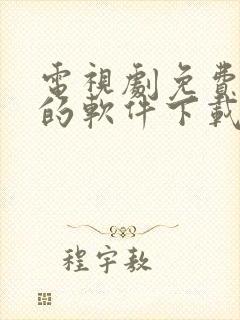 電視劇免費
的軟件下載
程宇敖